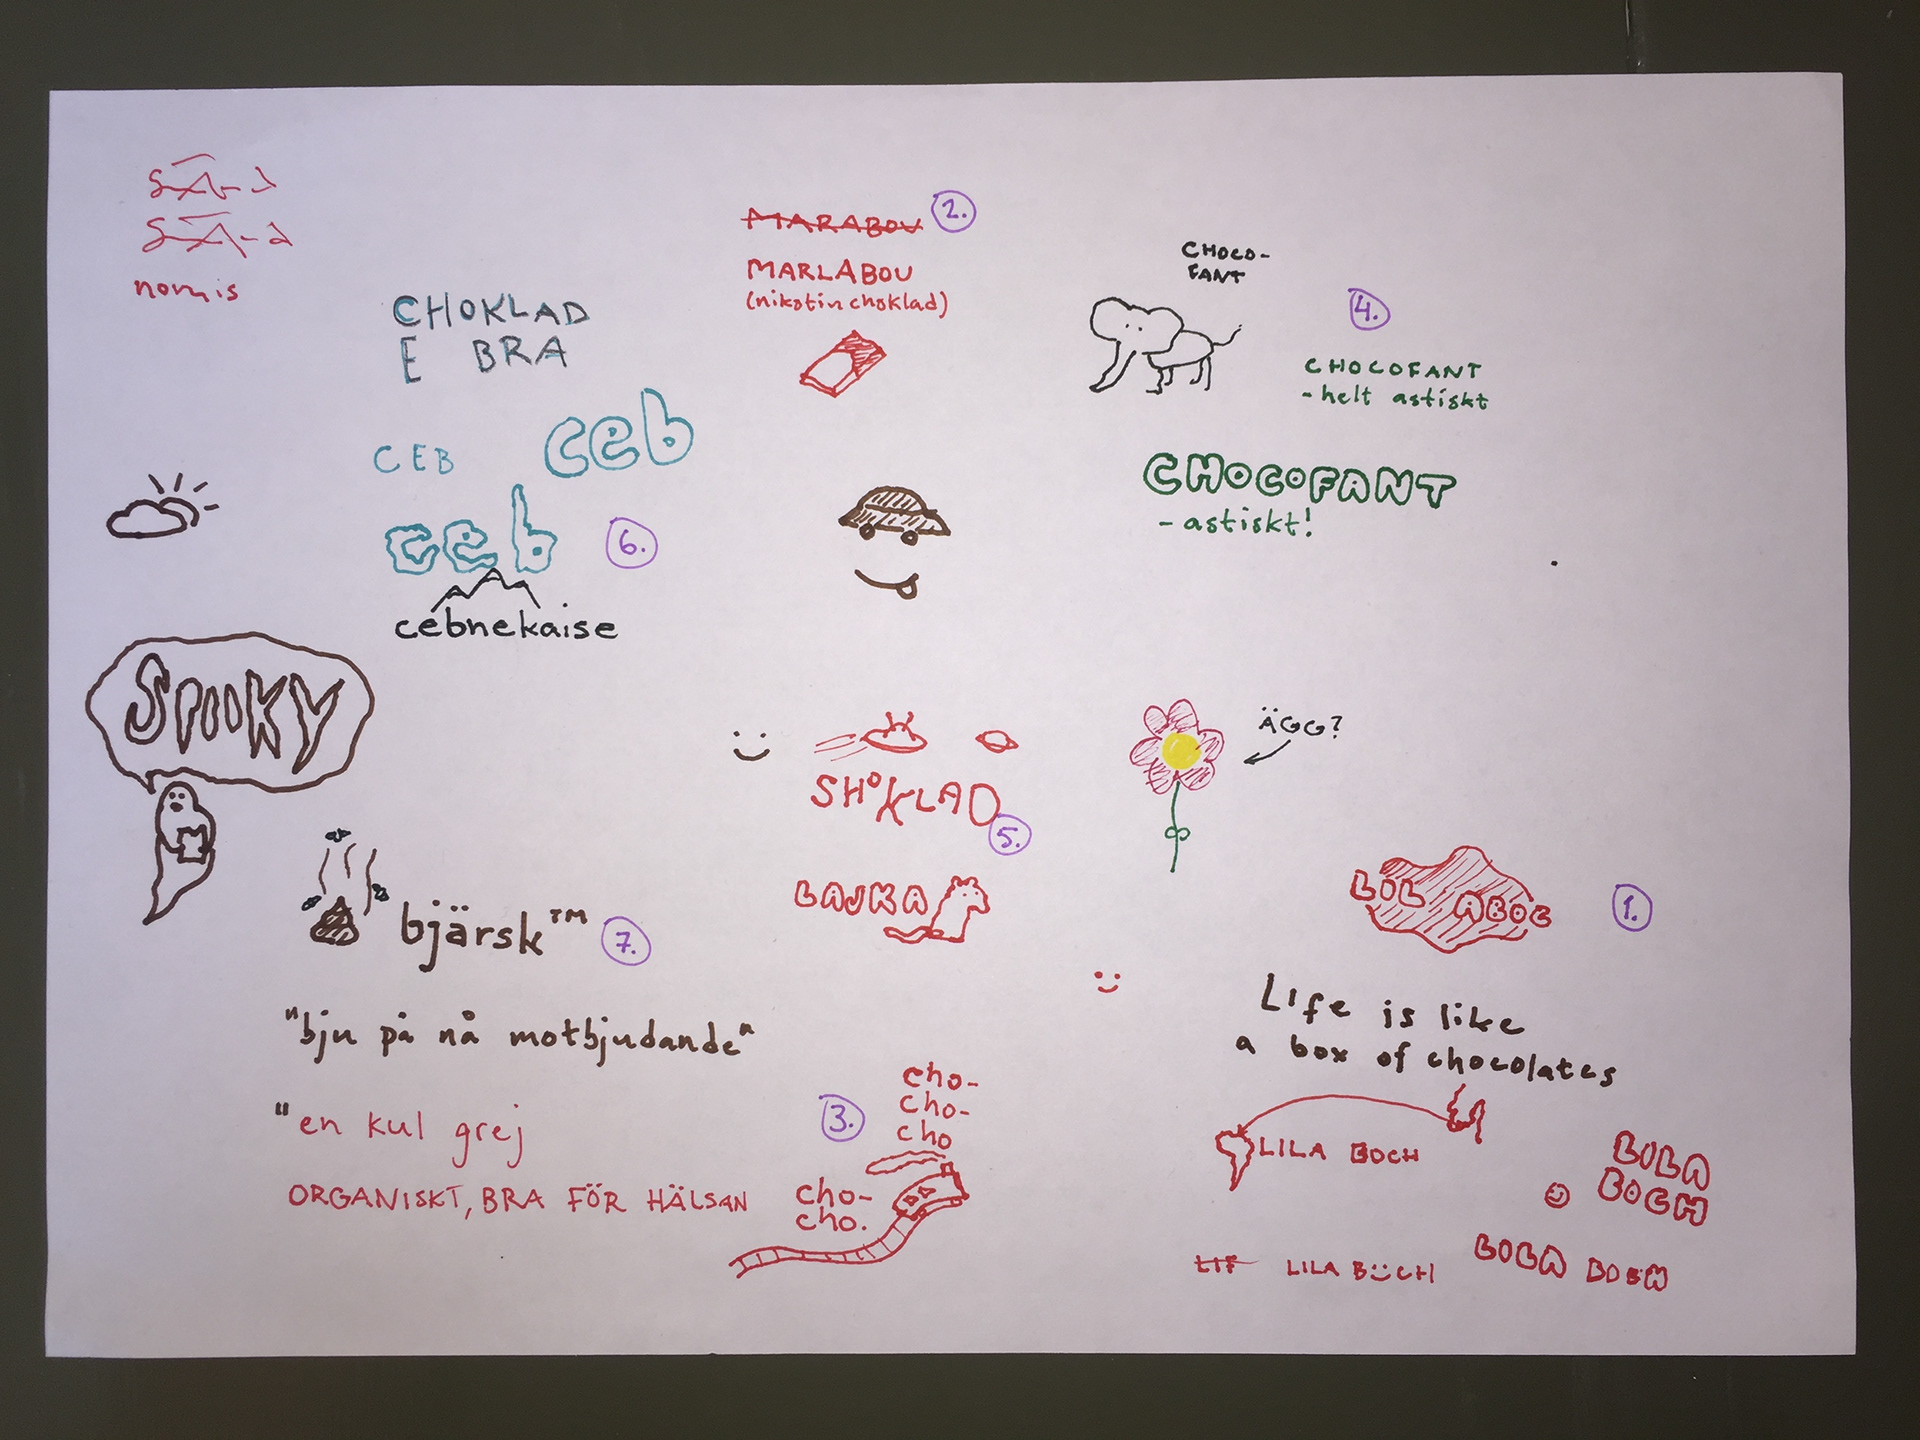 nomis
CHOKLAD
E BRA
CEB
ceb
ceb
6.
cebnekaise
SPOOKY
MARABOU
2.
MARLABOU
(nikotin choklad)
CHOCO-
FANT
4.
CHOCOFANT
- helt astiskt
CHOCOFANT
- astiskt!
SHOKLAD
5.
LAJKA
ÄGG?
LIL ABOC
1.
bjärsk™
7.
"bju på nå motbjudande"
"en kul grej
ORGANISKT, BRA FÖR HÄLSAN
3.
cho-
cho-
cho
cho-
cho.
Life is like
a box of chocolates
LILA BOCH
LILA
BOCH
LIF
LILA BÜCH
LILA BOCH